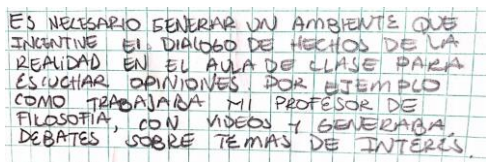 ES NECESARIO GENERAR UN AMBIENTE QUE
INCENTIVE EL DIALOGO DE HECHOS DE LA
REALIDAD EN EL AULA DE CLASE PARA
ESCUCHAR OPINIONES. POR EJEMPLO
COMO TRABAJABA MI PROFESOR DE
FILOSOFIA, CON VIDEOS Y GENERABA
DEBATES SOBRE TEMAS DE INTERES.